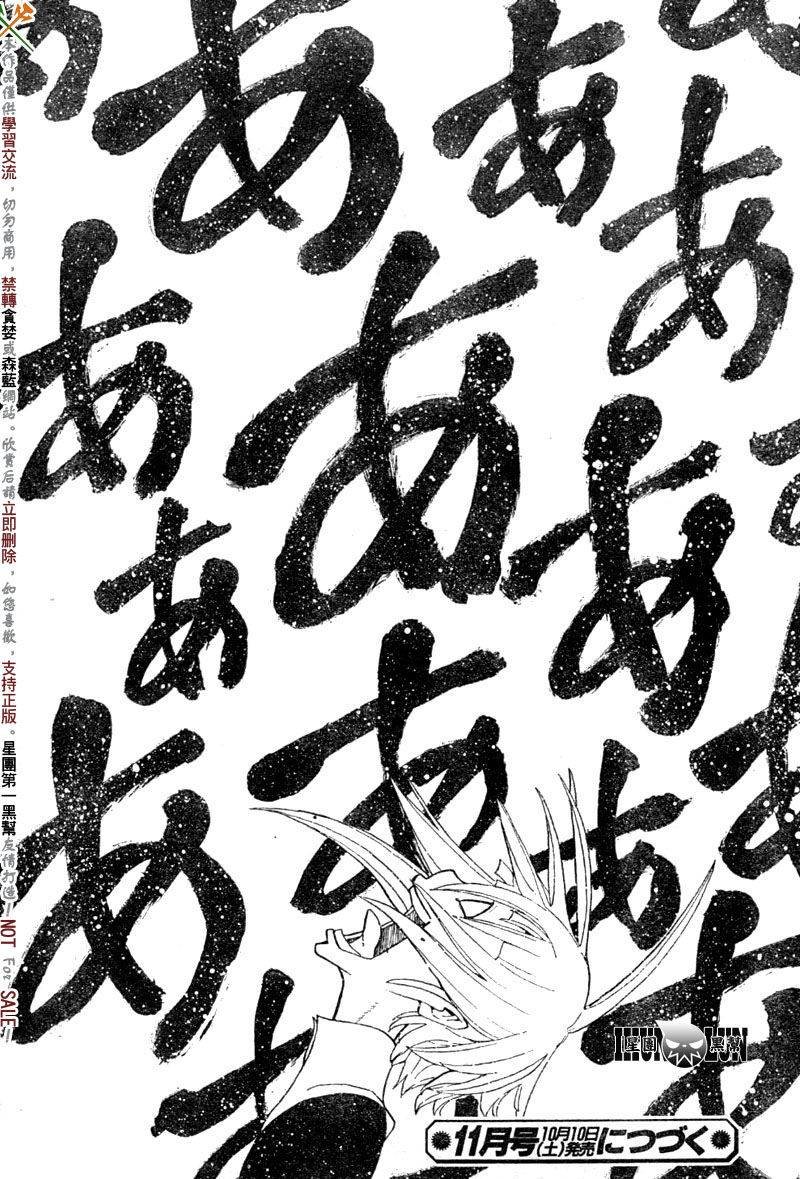 あ
あ
あ
あ
あ
あ
あ
あ
あ
あ
あ
あ
あ
あ
本作品僅供學習交流，切勿商用，禁轉貪婪或森藍網站。欣賞后請立即刪除，如您喜歡，支持正版。星團第一黑幫友情打造—NOT For SALE—
星團 黑幫
11月号 10月10日(土)発売 につづく